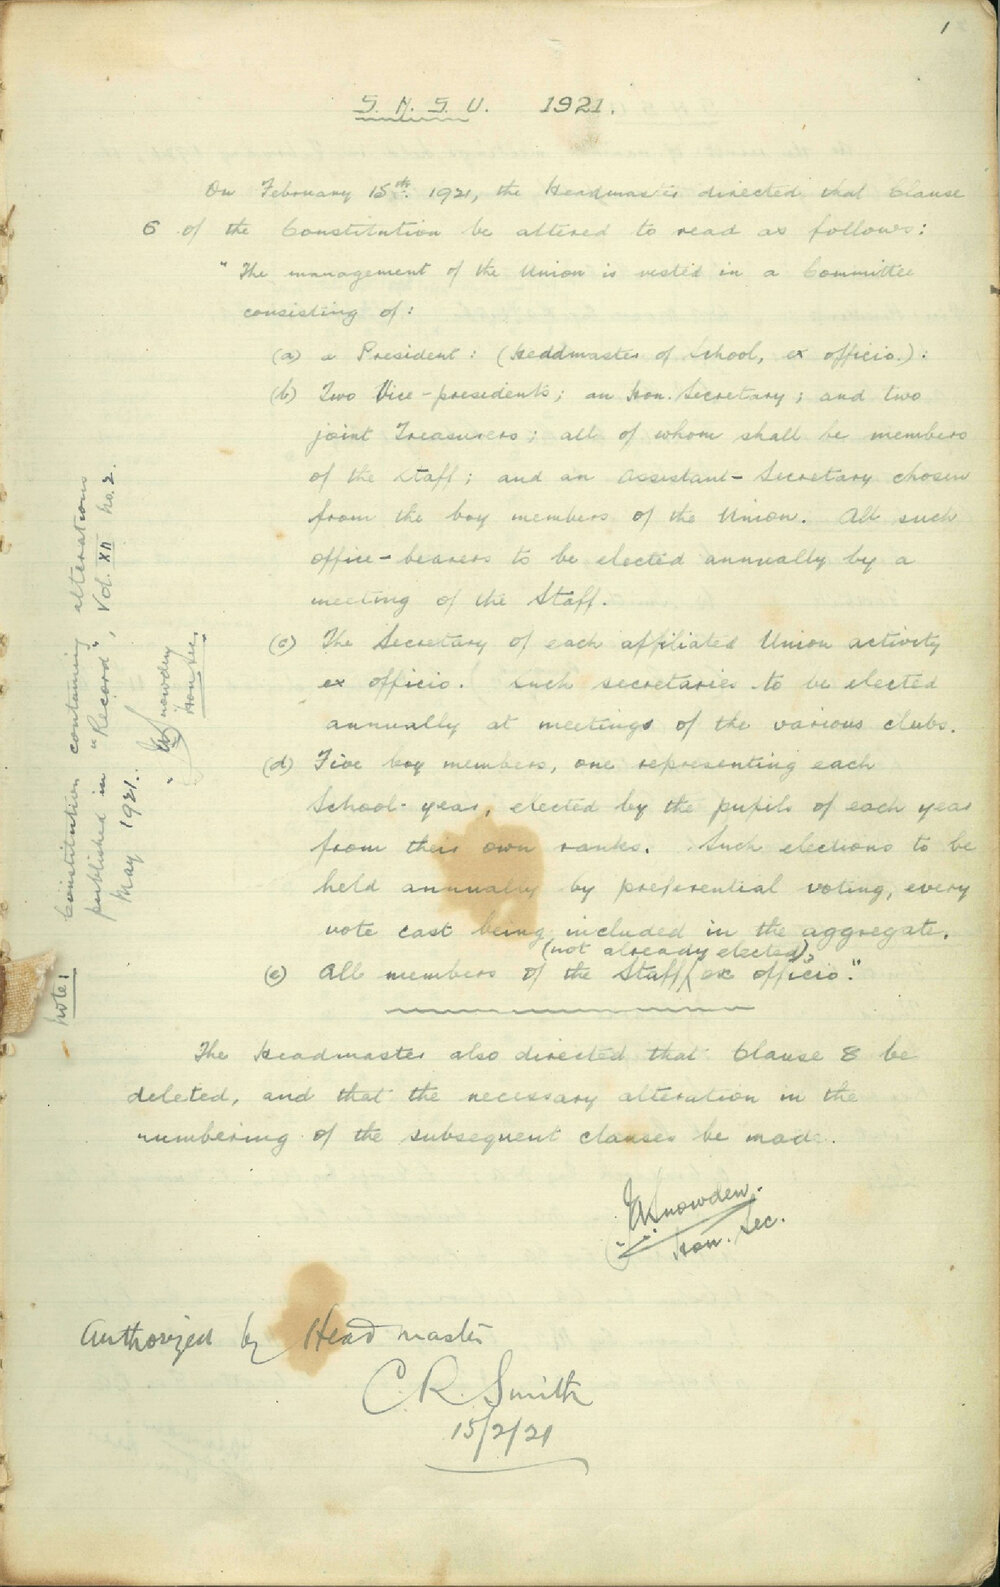 1
S. H. S. U. 1921.
On February 15th. 1921, the Headmaster directed that Clause
6 of the Constitution be altered to read as follows:
"The management of the Union is vested in a Committee
consisting of:
(a) a President: (Headmaster of School, ex officio.):
(b) Two Vice-presidents; an Hon. Secretary; and two
joint Treasurers; all of whom shall be members
of the Staff; and an Assistant-Secretary chosen
from the boy members of the Union. All such
office-bearers to be elected annually by a
meeting of the Staff.
(c) The Secretary of each affiliated Union activity
ex officio. Such secretaries to be elected
annually at meetings of the various clubs.
(d) Five boy members, one representing each
School-year, elected by the pupils of each year
from their own ranks. Such elections to be
held annually by preferential voting, every
vote cast being included in the aggregate.
(not already elected),
(e) All members of the Staff ex officio."
The Headmaster also directed that Clause 8 be
deleted, and that the necessary alteration in the
numbering of the subsequent clauses be made.
Snowden.
Hon. Sec.
Authorized by Head master
C. R. Smith
15/2/21
Note:
Constitution containing alterations
published in "Record", Vol. XII No. 2.
May 1921.
Snowden
Hon Sec.